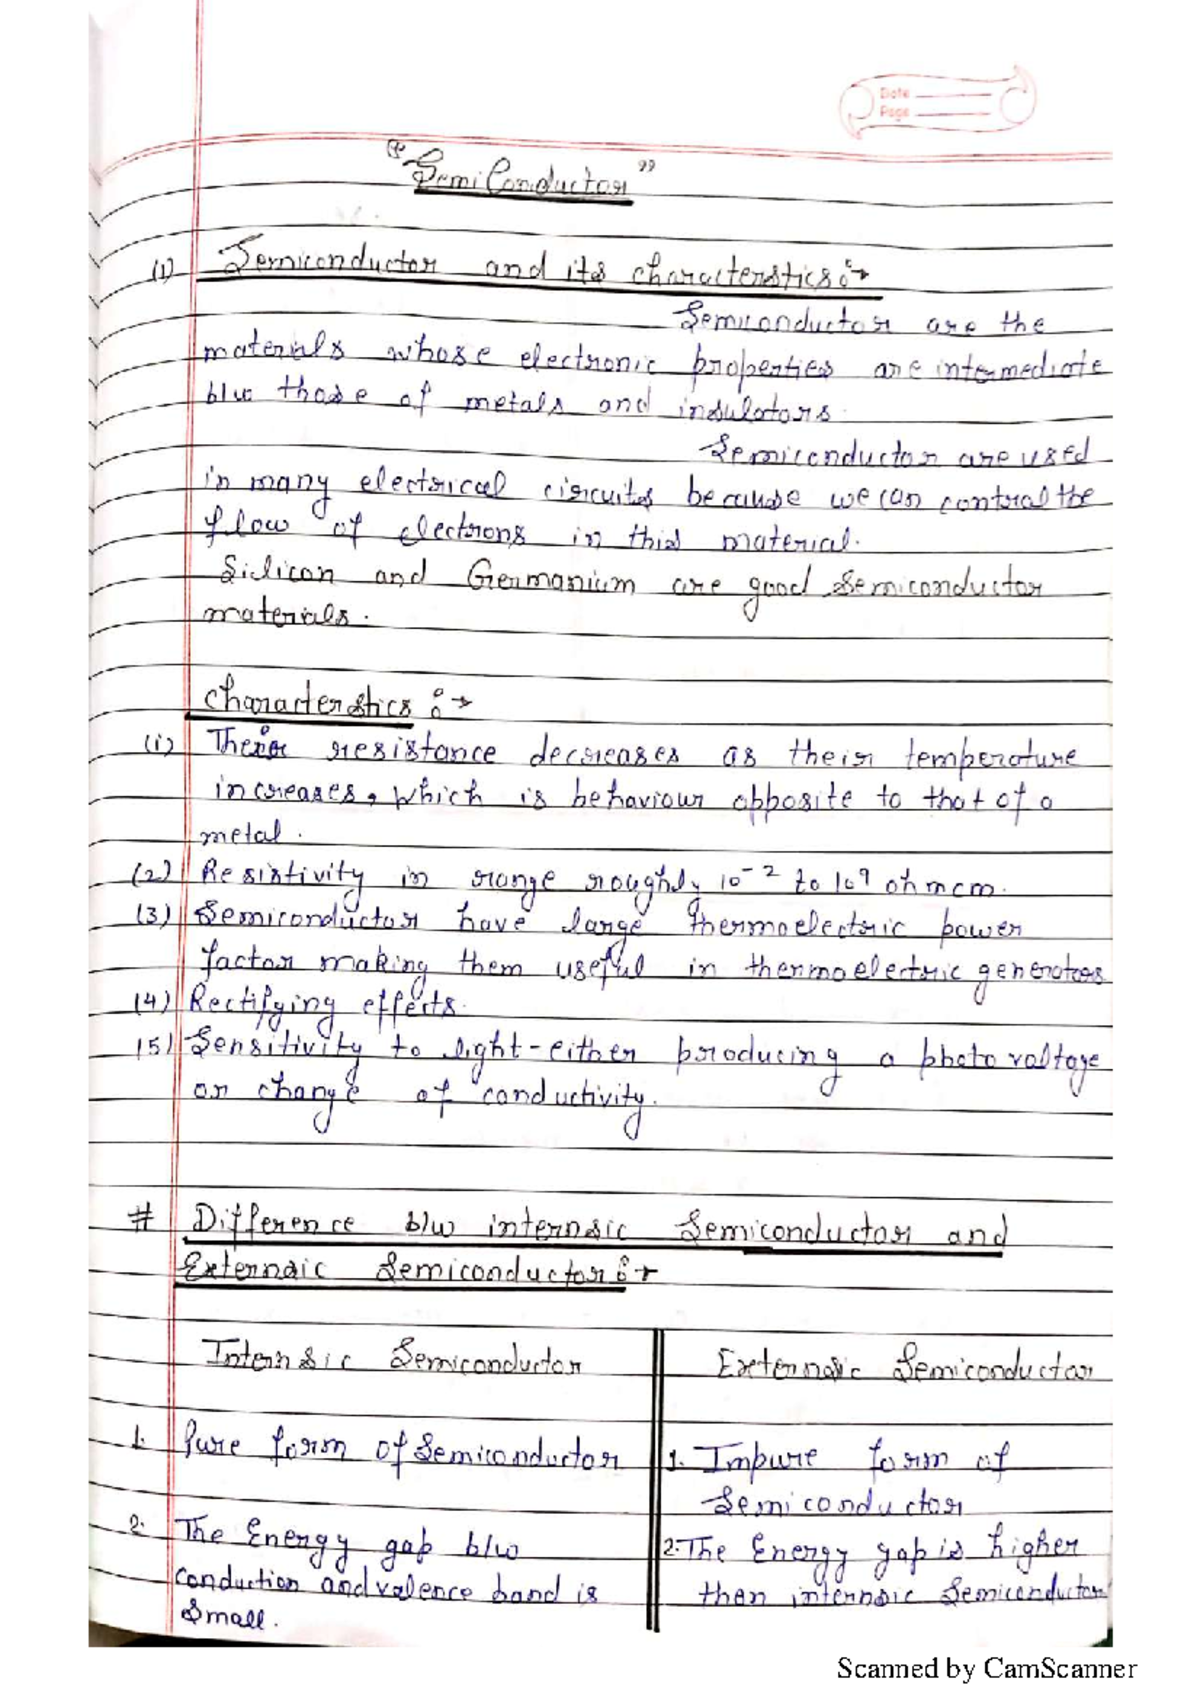 Date
Page
"SemiConductor"
(1) Semiconductor and its characterstics :→
Semiconductor are the
materials whose electronic properties are intermediate
b/w those of metals and insulators.
Semiconductor are used
in many electrical circuits because we can control the
flow of electrons in this material.
Silicon and Germanium are good semiconductor
materials.
characterstics :→
(i) Their resistance decreases as their temperature
increases, which is behaviour opposite to that of a
metal.
(2) Resistivity in range roughly 10⁻² to 10⁹ ohmcm.
(3) Semiconductor have large thermoelectric power
factor making them useful in thermoelectric generators
(4) Rectifying effects.
(5) Sensitivity to light-either producing a photovoltage
or change of conductivity.
# Difference b/w internsic Semiconductor and
Externsic Semiconductor :→
Internsic Semiconductor Externsic Semiconductor
1. Pure form of Semiconductor 1. Impure form of
Semiconductor
2. The Energy gap b/w 2. The Energy gap is higher
conduction and valence band is then internsic Semiconductor
Small.
Scanned by CamScanner